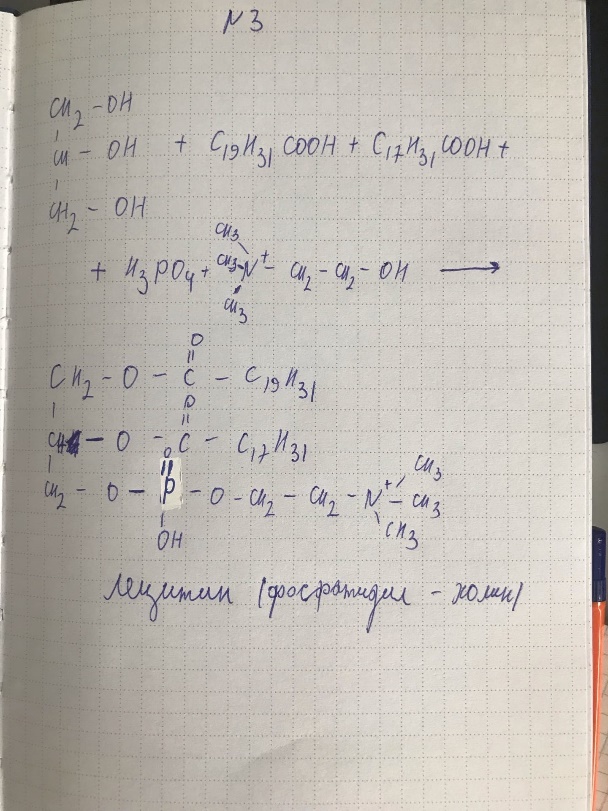 N3
CH2 - OH
CH - OH + C19H31 COOH + C17H31 COOH +
CH2 - OH
CH3
+ H3PO4 + CH3 N+ - CH2 - CH2 - OH →
CH3
O
CH2 - O - C - C19H31
O
CH - O - C - C17H31
O
CH3
CH2 - O - P - O - CH2 - CH2 - N+ - CH3
OH CH3
Лецитин (фосфатидил - холин)